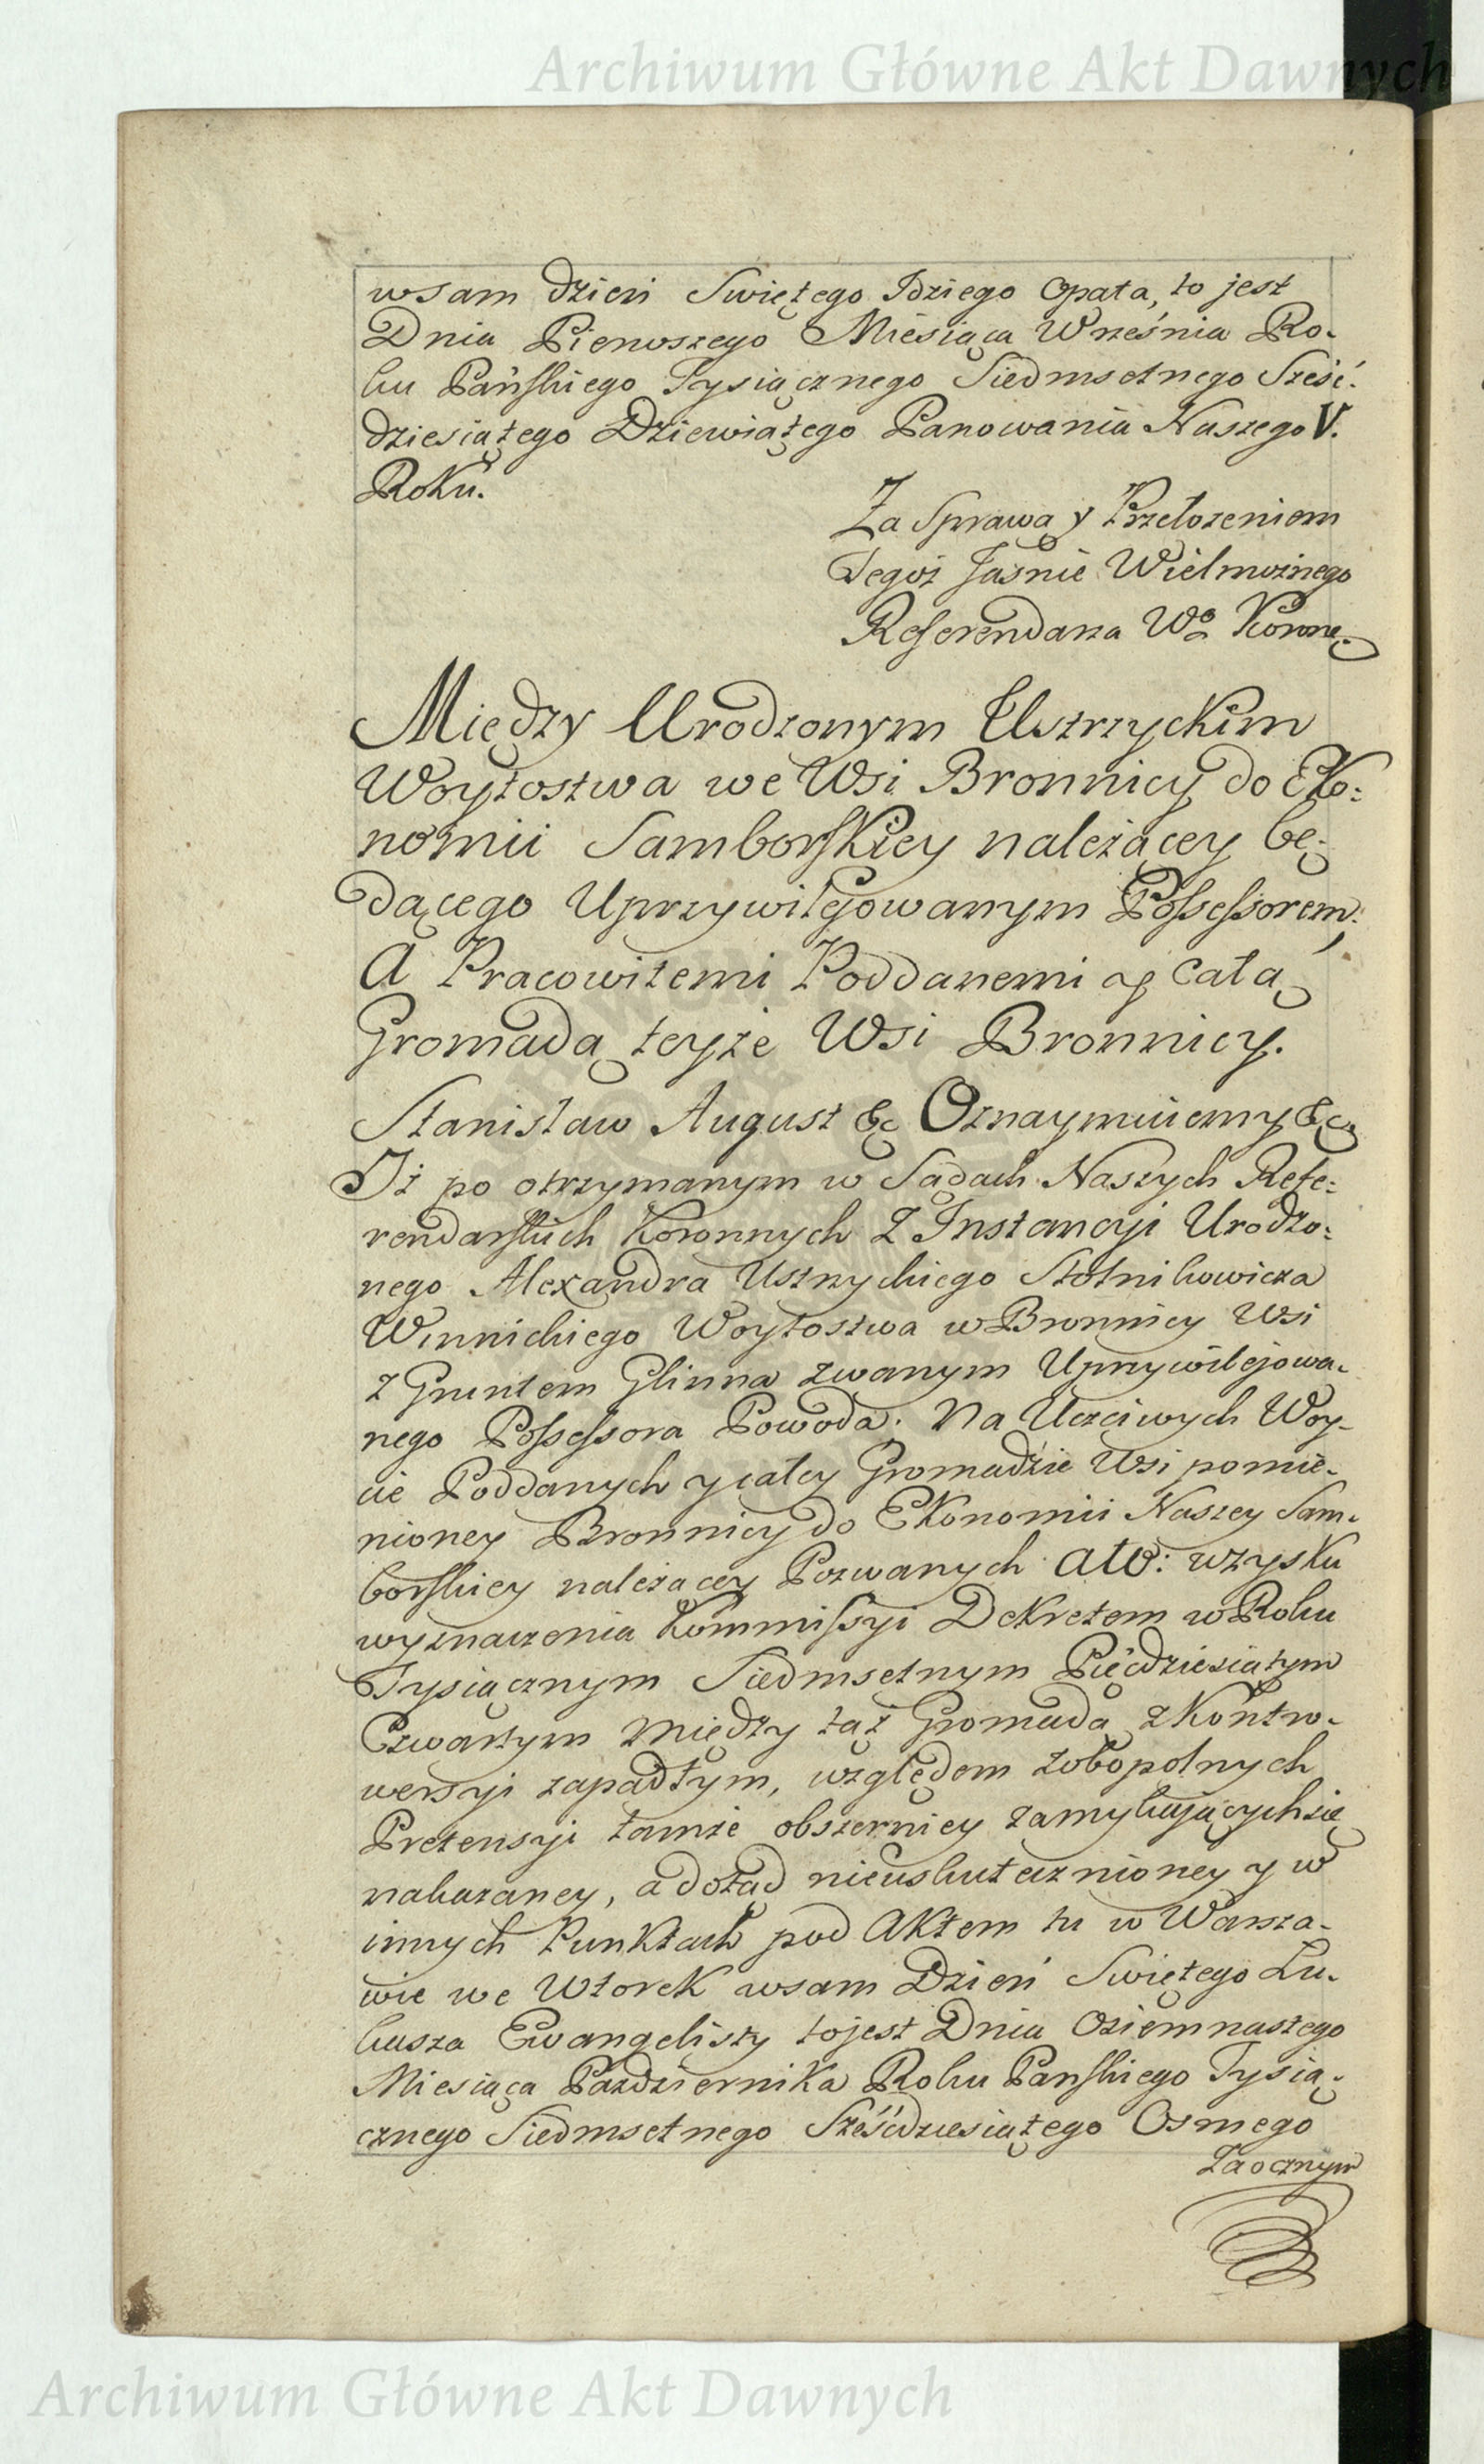 Archiwum Główne Akt Dawnych
wsam dzień Swiętego Idziego Opata, to jest
Dnia Pierwszego Miesiąca Września Ro-
ku Pańskiego Tysiącznego Siedmsetnego Sześć-
dziesiątego Dziewiątego Panowania Naszego V.
Roku.
Za Sprawą y Przełozeniem
Tegoż Jaśnie Wielmożnego
Referendarza Wo Koronne.
Między Urodzonym Ustrzyckim
Woytostwa we Wsi Bronnicy do Eko:
nomii Samborskiey należącey bę:
dącego Uprzywilejowanym Possessorem,
A Pracowitemi Poddanemi y całą
Gromadą teyże Wsi Bronnicy.
Stanisław August &c Oznaymuiemy &c
Iż po otrzymanym w Sądach Naszych Refe:
rendarskich Koronnych Z Instancyi Urodzo:
nego Alexandra Ustrzyckiego Stolnikowicza
Winnickiego Woytostwa w Bronnicy Wsi
z Gruntem Glinna zwanym Uprzywilejowa-
nego Possessora Powoda. Na Uczciwych Woy-
cie Poddanych y całey Gromadzie Wsi pomie-
nioney Bronnicy do Ekonomii Naszey Sam-
borskiey należącey Pozwanych atto: wzysku
wyznaczenia Kommissyi Dekretem w Roku
Tysiącznym Siedmsetnym Pięćdziesiątym
Czwartym między taż Gromadą z Kontro-
wersyi zapadłym, względem zobopolnych
Pretensyi tamże obszerniey zamykających się
nakazaney, a dotąd nieuskuteznioney y w
innych Punktach pod Aktem tu w Warsza-
wie we Wtorek wsam Dzień Swiętego Łu-
kasza Ewangelisty tojest Dnia Osiemnastego
Miesiąca Paździerṅika Roku Panskiego Tysią-
cznego Siedmsetnego Sześćdziesiątego Osmego
Zaocznym
Archiwum Główne Akt Dawnych